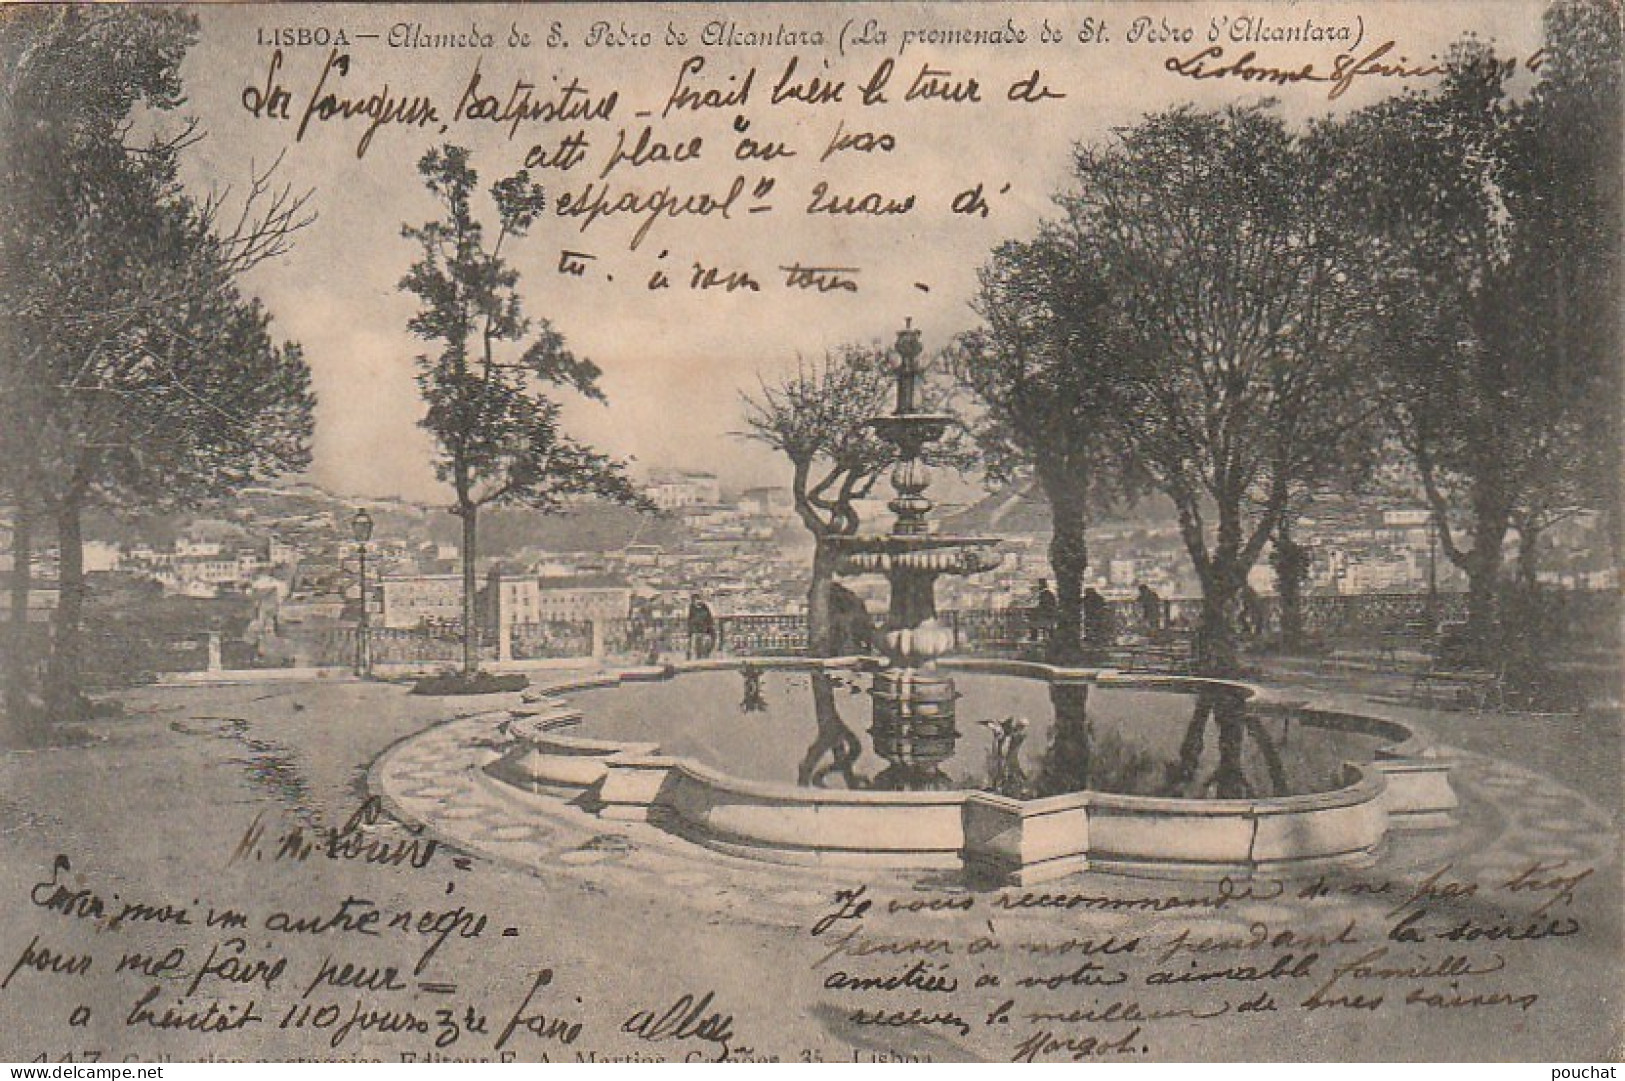 LISBOA — Alameda de S. Pedro de Alcantara (La promenade de St. Pedro d'Alcantara)
Lisbonne 8 février
La fougeuse, - Serait bien le tour de
cette place "au pas
espagnol" - di
tu. à vous tous -
Louise -
Envoi moi un autre nègre -
pour me faire peur -
a bientôt 110 jours
Je vous recommande de ne pas trop
penser à nous pendant la soirée
amitiée à votre aimable famille
recevez le meilleur de mes baisers
Margot.
117 Collection portugaise. Editeur F. A. Martins, Camões, 35 — Lisboa
pouchat